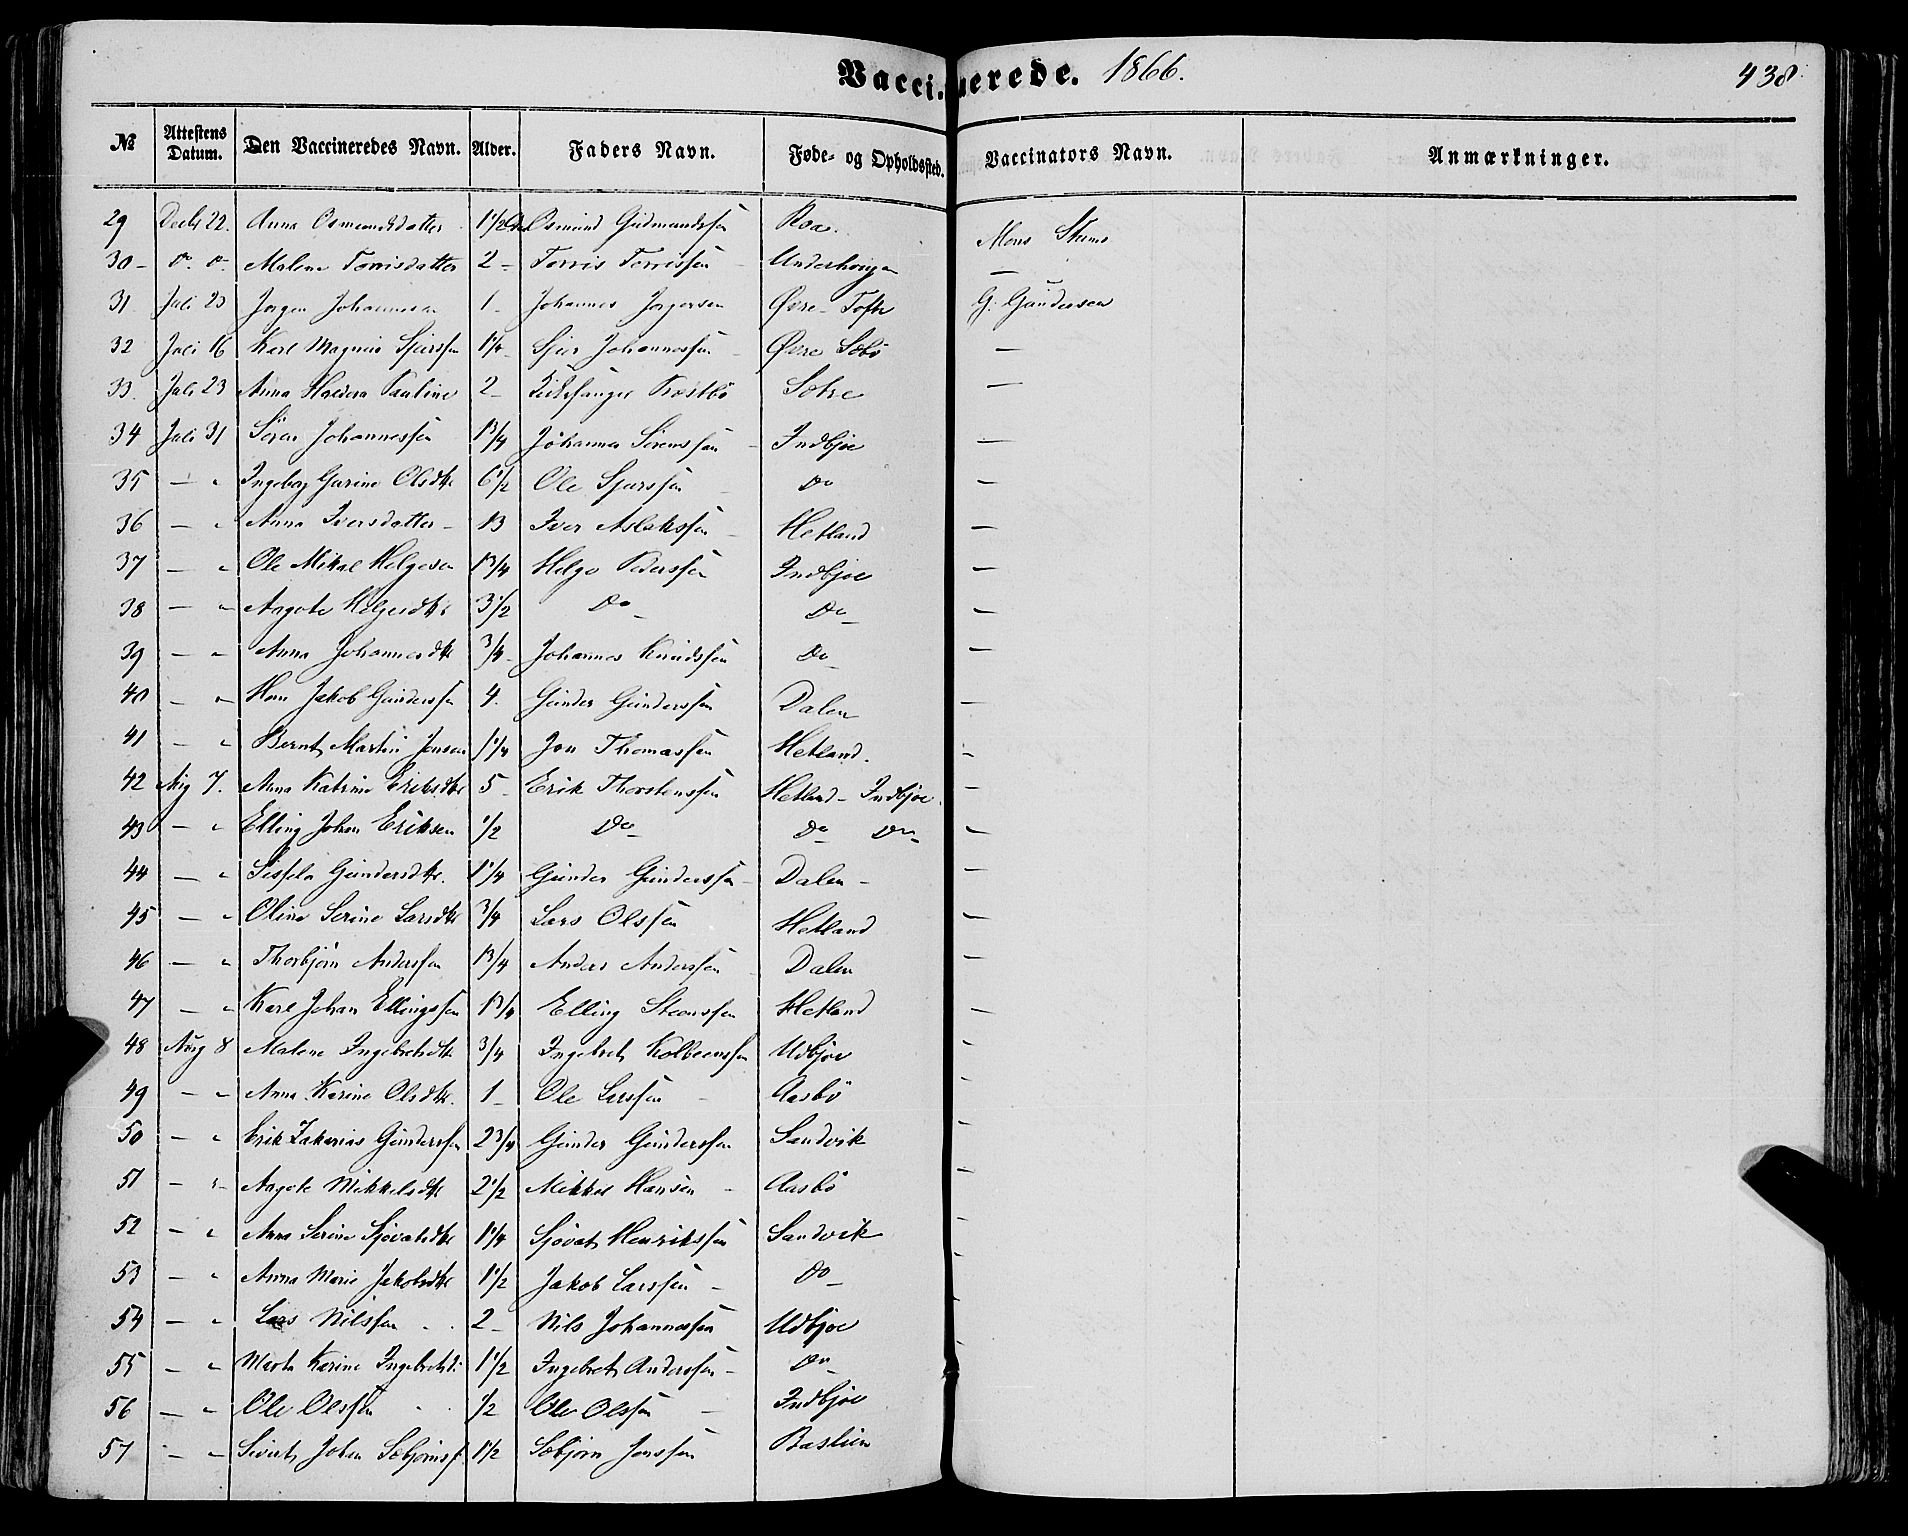 Vaccinerede. 1866. 438
№ Attestens Datum. Den Vaccineredes Navn. Alder. Faders Navn. Føde- og Opholdssted. Vaccinators Navn. Anmærkninger.
29 Decbr 22. Anna Osmundsdatter 1 1/2 Osmund Gudmundssen Roa. Mons
30 - do. do. Malene Torrisdatter 2 - Torris Torrissen
31 Juli 23 Jørgen Johannesen 1 - Johannes Jørgersen Øvre Tofte G. Gundersen
32 Juli 16 Karl Magnus Sjursen 1 1/4 - Sjur Johannessen Øvre Sæbö —
33. Juli 23 Anna Pauline 2 - —
34 Juli 31 Sören Johannessen 1 3/4 Johannes Sörenssen Indbjoe —
35 — " Ingeborg Gurine Olsdtr 6 1/2 Ole Sjurssen Do —
36 — " Anna Iversdatter - 13 Iver Aslakssen Hetland —
37 — " Ole Mikal Helgesen 1 3/4 Helge Pederssen Indbjoe —
38 — " Aagote Helgesdtr 3 1/2 Do Do —
39 — " Anna Johannesdtr 3/4 - Johannes Knudssen Do —
40 — " Hans Jakob Gunderssen 4. Gunder Gunderssen Dalen —
41 — " Bernt Martin Jonsen 1 1/4 Jon Thomassen Hetland. —
42 Aug 7. Anna Katrine Eriksdtr 5 - Erik Thorstenssen Hetland - Indbjoe. —
43 — " Elling Johan Eriksen 1/2 Do Do Do —
44 — " Sissela Gundersdtr. 1 1/4 Gunder Gunderssen - Dalen - —
45 — " Oline Serine Larsdtr 3/4 Lars Olssen Hetland —
46 — " Thorbjörn Anderssen 1 3/4 Anders Anderssen Dalen —
47 — " Karl Johan Ellingssen 1 3/4 Elling Hetland —
48 Aug 8 Malene Ingebretsdtr 3/4 Ingebret Udbjoe —
49 — " Anna Karine Olsdtr. 1 - Ole Larssen - Aasbö —
50 — " Erik Zakarias Gunderssen 2 3/4 Gunder Gunderssen Sandvik —
51 — " Aagote Mikkelsdtr 2 1/2 Mikkel Hansen - Aasbö —
52 — " Anna Serine Sjovatsdtr 1 1/4 Sjovat Henrikssen Sandvik —
53 — " Anna Marie Jakobsdtr 1 1/2 Jakob Larssen - Do —
54 — " Lars Nilssen 2 - Nils Johannessen Udbjoe —
55 — " Karine Ingebretsd: 1 1/2 Ingebret Anderssen - Do —
56 — " Ole Olssen 1/2 Ole Olssen - Indbjoe
57 — " Sivert Johan Sebjörnss. 1 1/2 Sebjörn Jonssen